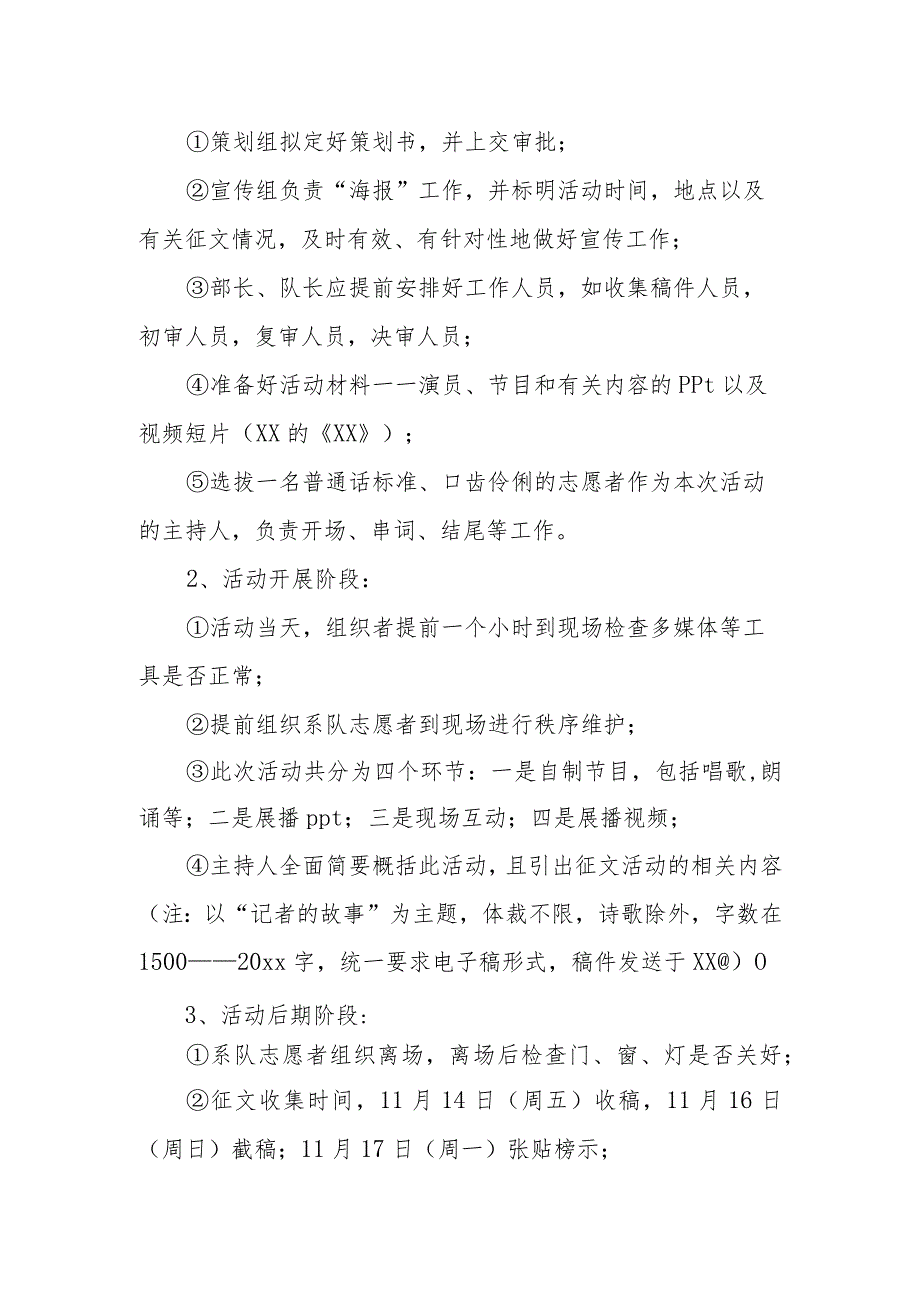 ①策划组拟定好策划书，并上交审批；
②宣传组负责“海报”工作，并标明活动时间，地点以及
有关征文情况，及时有效、有针对性地做好宣传工作；
③部长、队长应提前安排好工作人员，如收集稿件人员，
初审人员，复审人员，决审人员；
④准备好活动材料一一演员、节目和有关内容的PPt以及
视频短片（XX的《XX》）；
⑤选拔一名普通话标准、口齿伶俐的志愿者作为本次活动
的主持人，负责开场、串词、结尾等工作。
2、活动开展阶段：
①活动当天，组织者提前一个小时到现场检查多媒体等工
具是否正常；
②提前组织系队志愿者到现场进行秩序维护；
③此次活动共分为四个环节：一是自制节目，包括唱歌,朗
诵等；二是展播ppt；三是现场互动；四是展播视频；
④主持人全面简要概括此活动，且引出征文活动的相关内容
（注：以“记者的故事”为主题，体裁不限，诗歌除外，字数在
1500——20xx字，统一要求电子稿形式，稿件发送于XX@）O
3、活动后期阶段:
①系队志愿者组织离场，离场后检查门、窗、灯是否关好；
②征文收集时间，11月14日（周五）收稿，11月16日
（周日）截稿；11月17日（周一）张贴榜示；